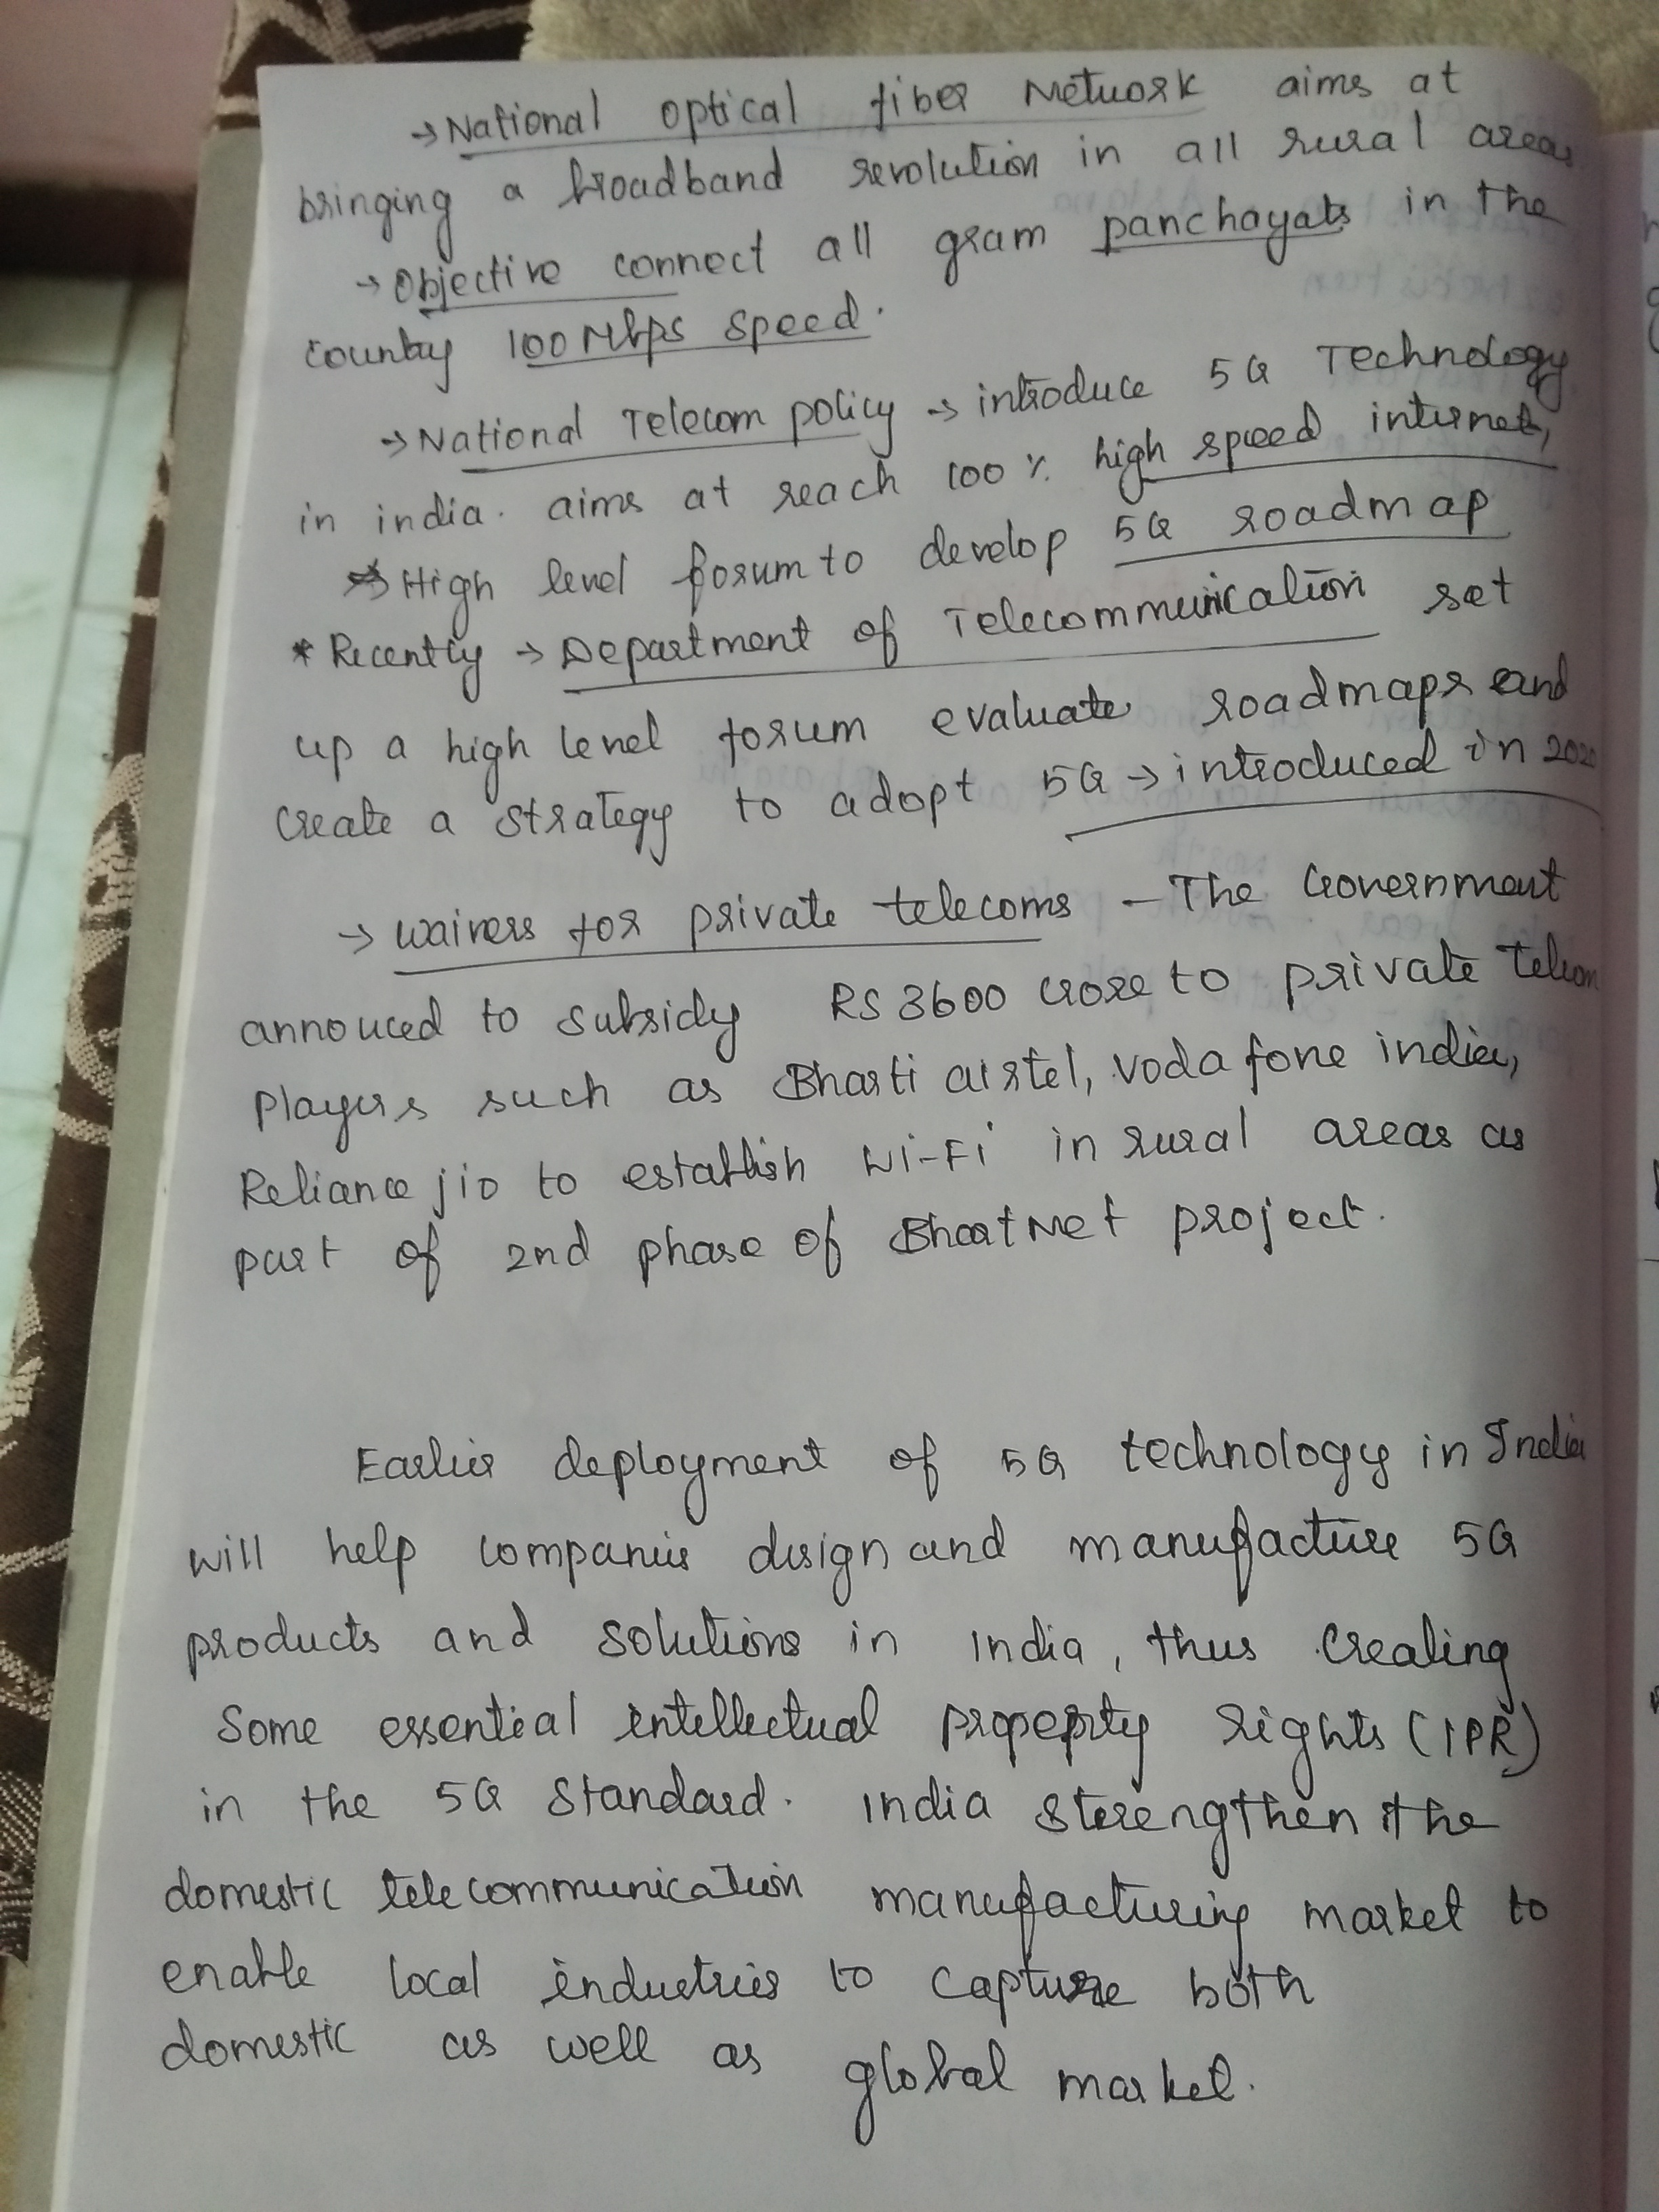 → National optical fiber Network aims at
bringing a broadband revolution in all rural areas
→ Objective connect all gram panchayats in the
country 100 Mbps speed.
→ National Telecom policy → introduce 5G Technology
in india. aims at reach 100 % high speed internet,
→ High level forum to develop 5G roadmap
* Recently → Department of Telecommunication set
up a high level forum evaluate roadmaps and
create a strategy to adopt 5G → introduced in 2020
→ waivers for private telecoms – The Government
annouced to subsidy RS 3600 crore to private Telecom
players such as Bharti airtel, vodafone india,
Reliance jio to establish Wi-Fi in rural areas as
part of 2nd phase of BharatNet project.
Earlier deployment of 5G technology in India
will help companies design and manufacture 5G
products and solutions in india, thus creating
Some essential intellectual property rights (IPR)
in the 5G Standard. India strengthen the
domestic telecommunication manufacturing market to
enable local industries to capture both
domestic as well as global market.